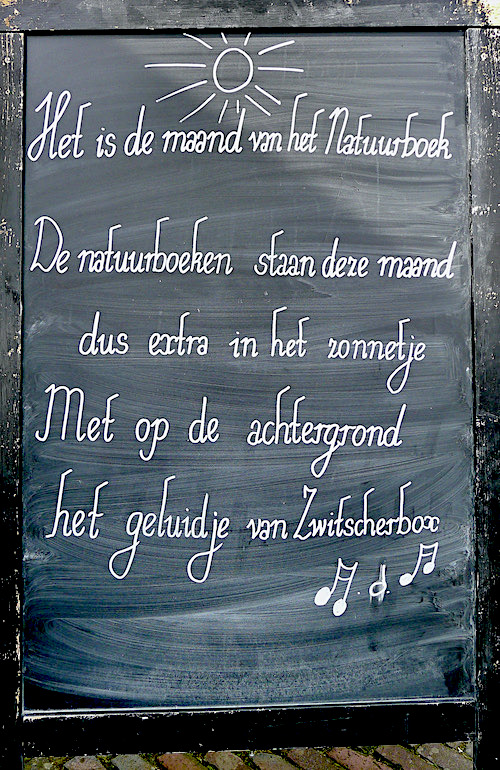 Het is de maand van het Natuurboek
De natuurboeken staan deze maand
dus extra in het zonnetje
Met op de achtergrond
het geluidje van Zwitscherbox